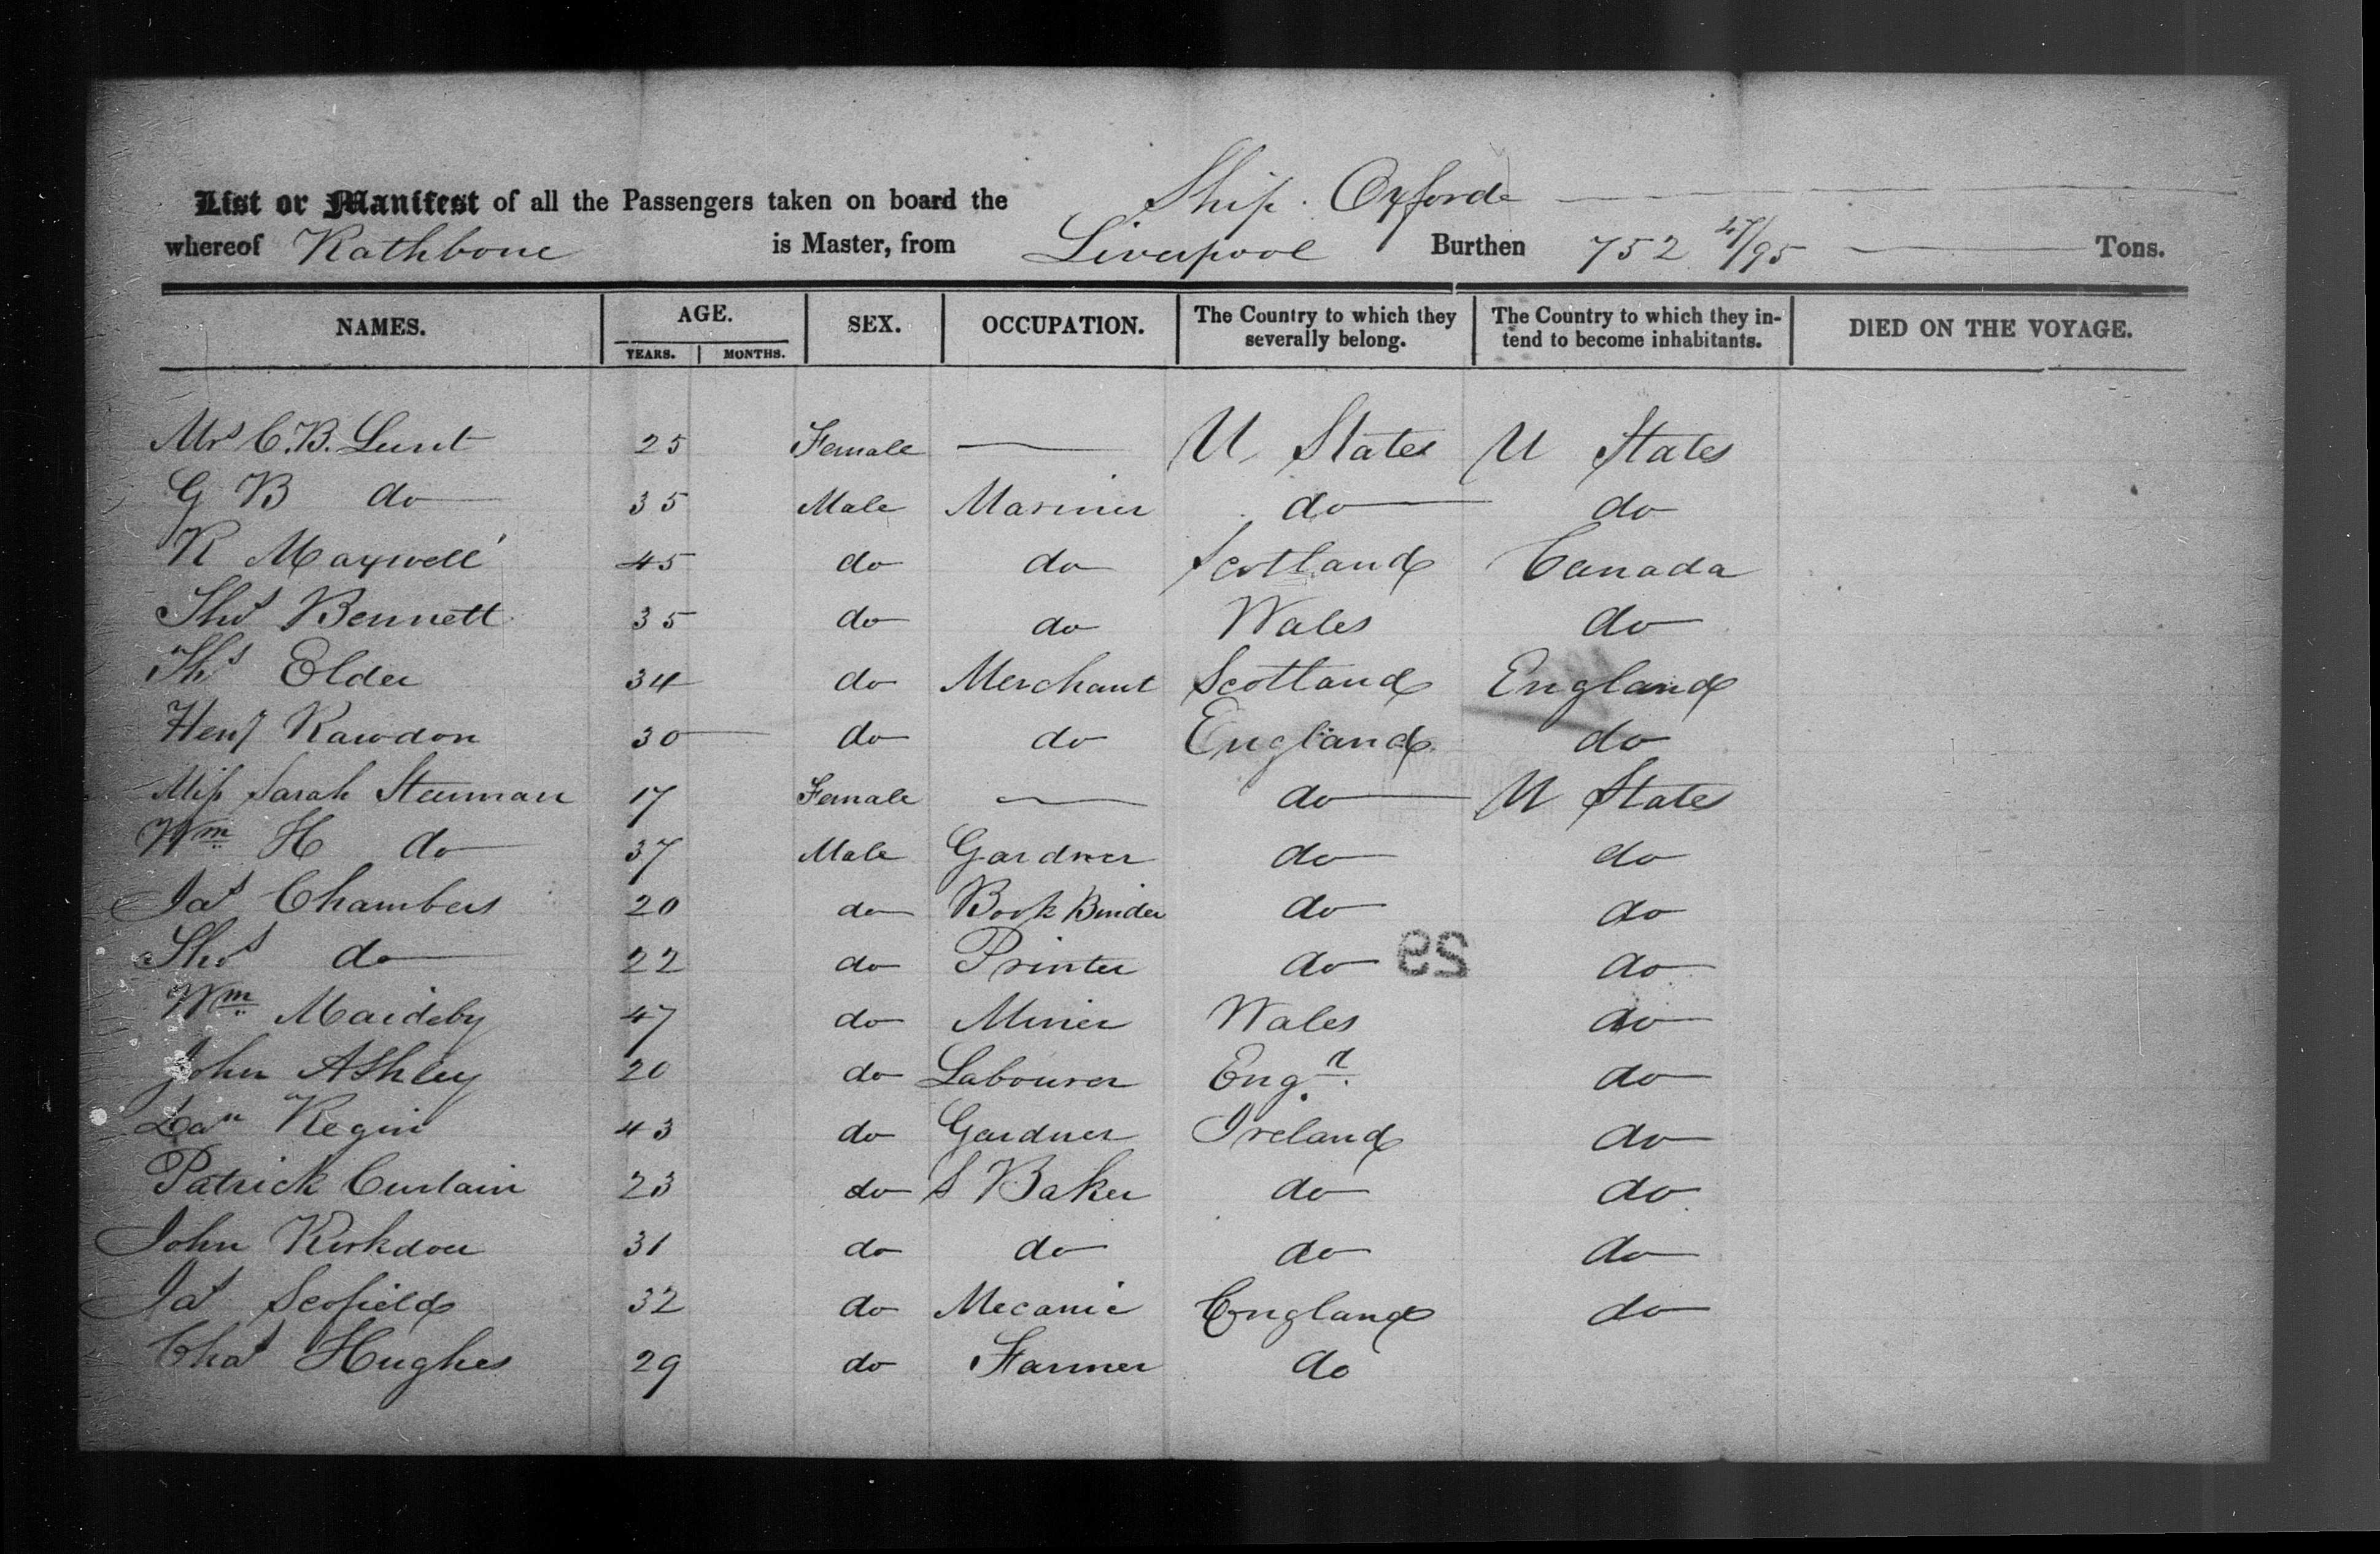 List or Manifest of all the Passengers taken on board the Ship Oxford
whereof Rathbone is Master, from Liverpool Burthen 752 47/95 Tons.
NAMES. AGE. SEX. OCCUPATION. The Country to which they severally belong. The Country to which they intend to become inhabitants. DIED ON THE VOYAGE.
YEARS. MONTHS.
Mrs C. B. Lunt 25 Female — U States U States
G B do 35 Male Mariner do do
R Maxwell 45 do do Scotland Canada
Thos Bennett 35 do do Wales do
Ths Elder 34 do Merchant Scotland England
Heny Rawdon 30 do do England do
Miss Sarah 17 Female — do U States
Wm H do 37 Male Gardner do do
Jas Chambers 20 do Book Binder do do
Thos do 22 do Printer do do
Wm 47 do Miner Wales do
John Ashley 20 do Labourer Engd do
Dan Regin 43 do Gardner Ireland do
Patrick Curtain 23 do S Baker do do
John 31 do do do do
Jas Scofield 32 do Mecanic England do
Chas Hughes 29 do Farmer do